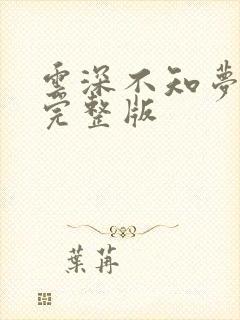 雲深不知夢
完整版
葉苒